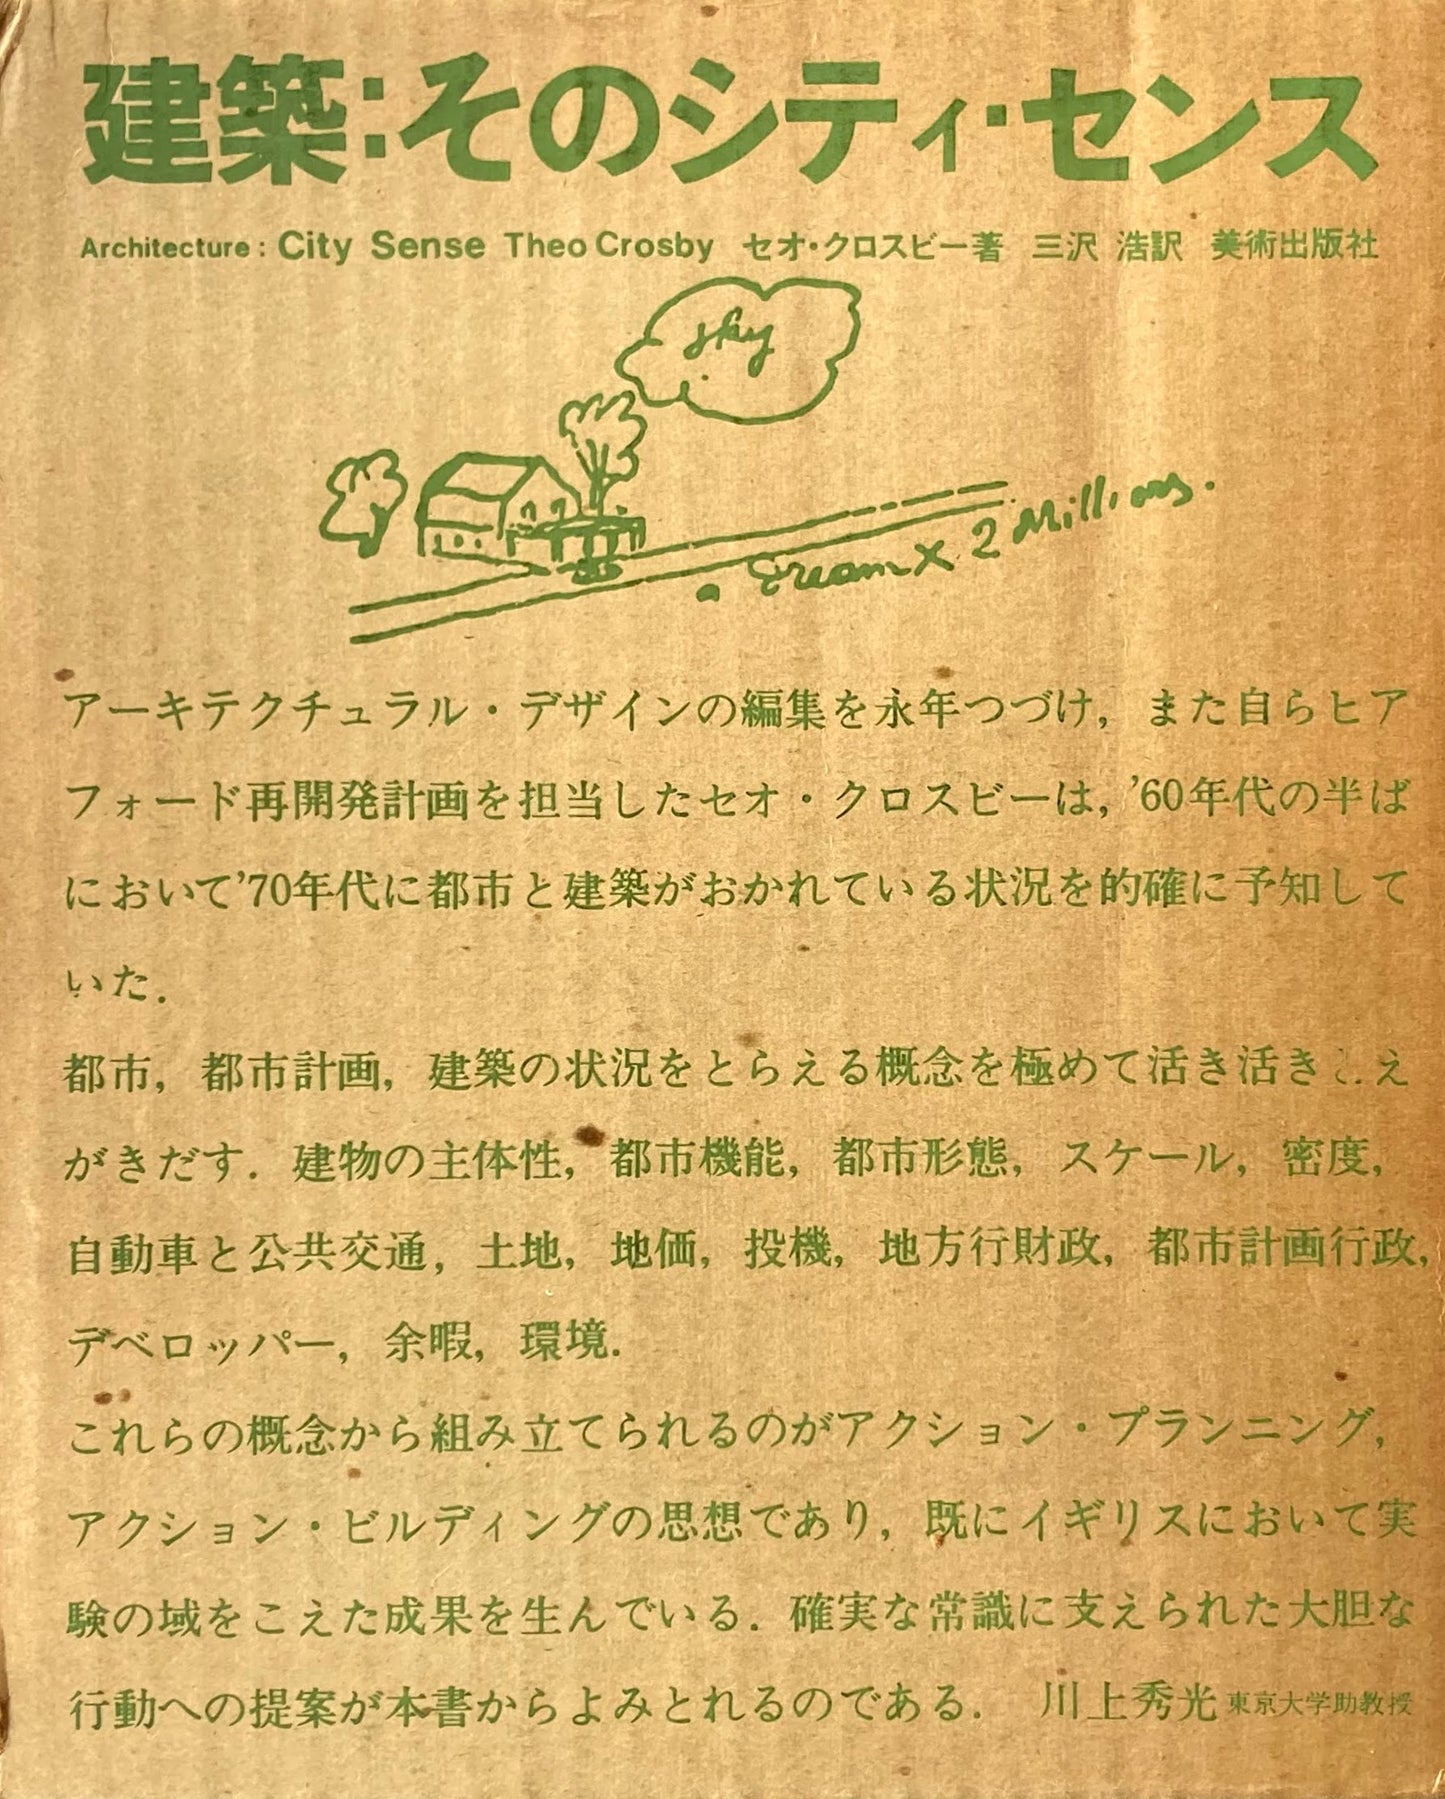 建築：そのシティ・センス
Architecture : City Sense Theo Crosby セオ・クロスビー著 三沢 浩訳 美術出版社
sky
a dream × 2 Millions.
アーキテクチュラル・デザインの編集を永年つづけ，また自らヒア
フォード再開発計画を担当したセオ・クロスビーは，’60年代の半ば
において’70年代に都市と建築がおかれている状況を的確に予知して
いた．
都市，都市計画，建築の状況をとらえる概念を極めて活き活き え
がきだす．建物の主体性，都市機能，都市形態，スケール，密度，
自動車と公共交通，土地，地価，投機，地方行財政，都市計画行政，
デベロッパー，余暇，環境．
これらの概念から組み立てられるのがアクション・プランニング，
アクション・ビルディングの思想であり，既にイギリスにおいて実
験の域をこえた成果を生んでいる．確実な常識に支えられた大胆な
行動への提案が本書からよみとれるのである． 川上秀光 東京大学助教授